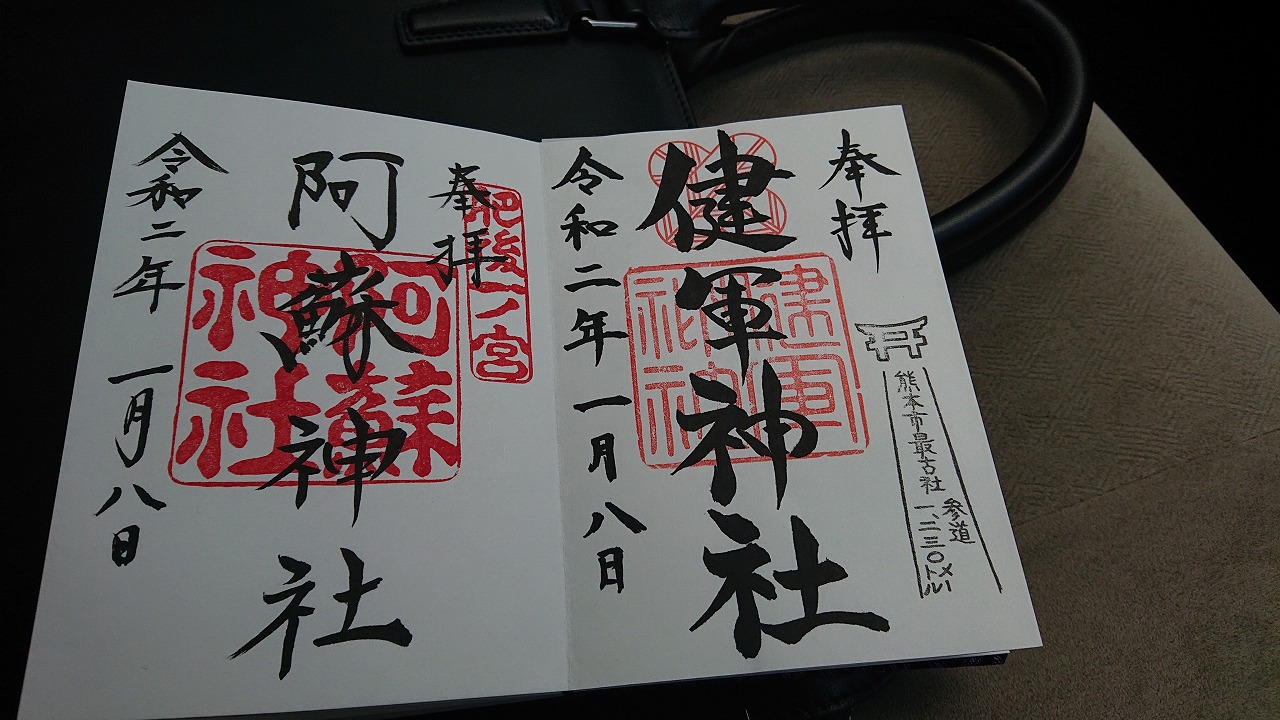 奉拝
熊本市最古社
参道
一、二三〇メートル
健軍神社
令和二年一月八日
奉拝
肥後一ノ宮
阿蘇神社
阿蘇神社
令和二年 一月八日